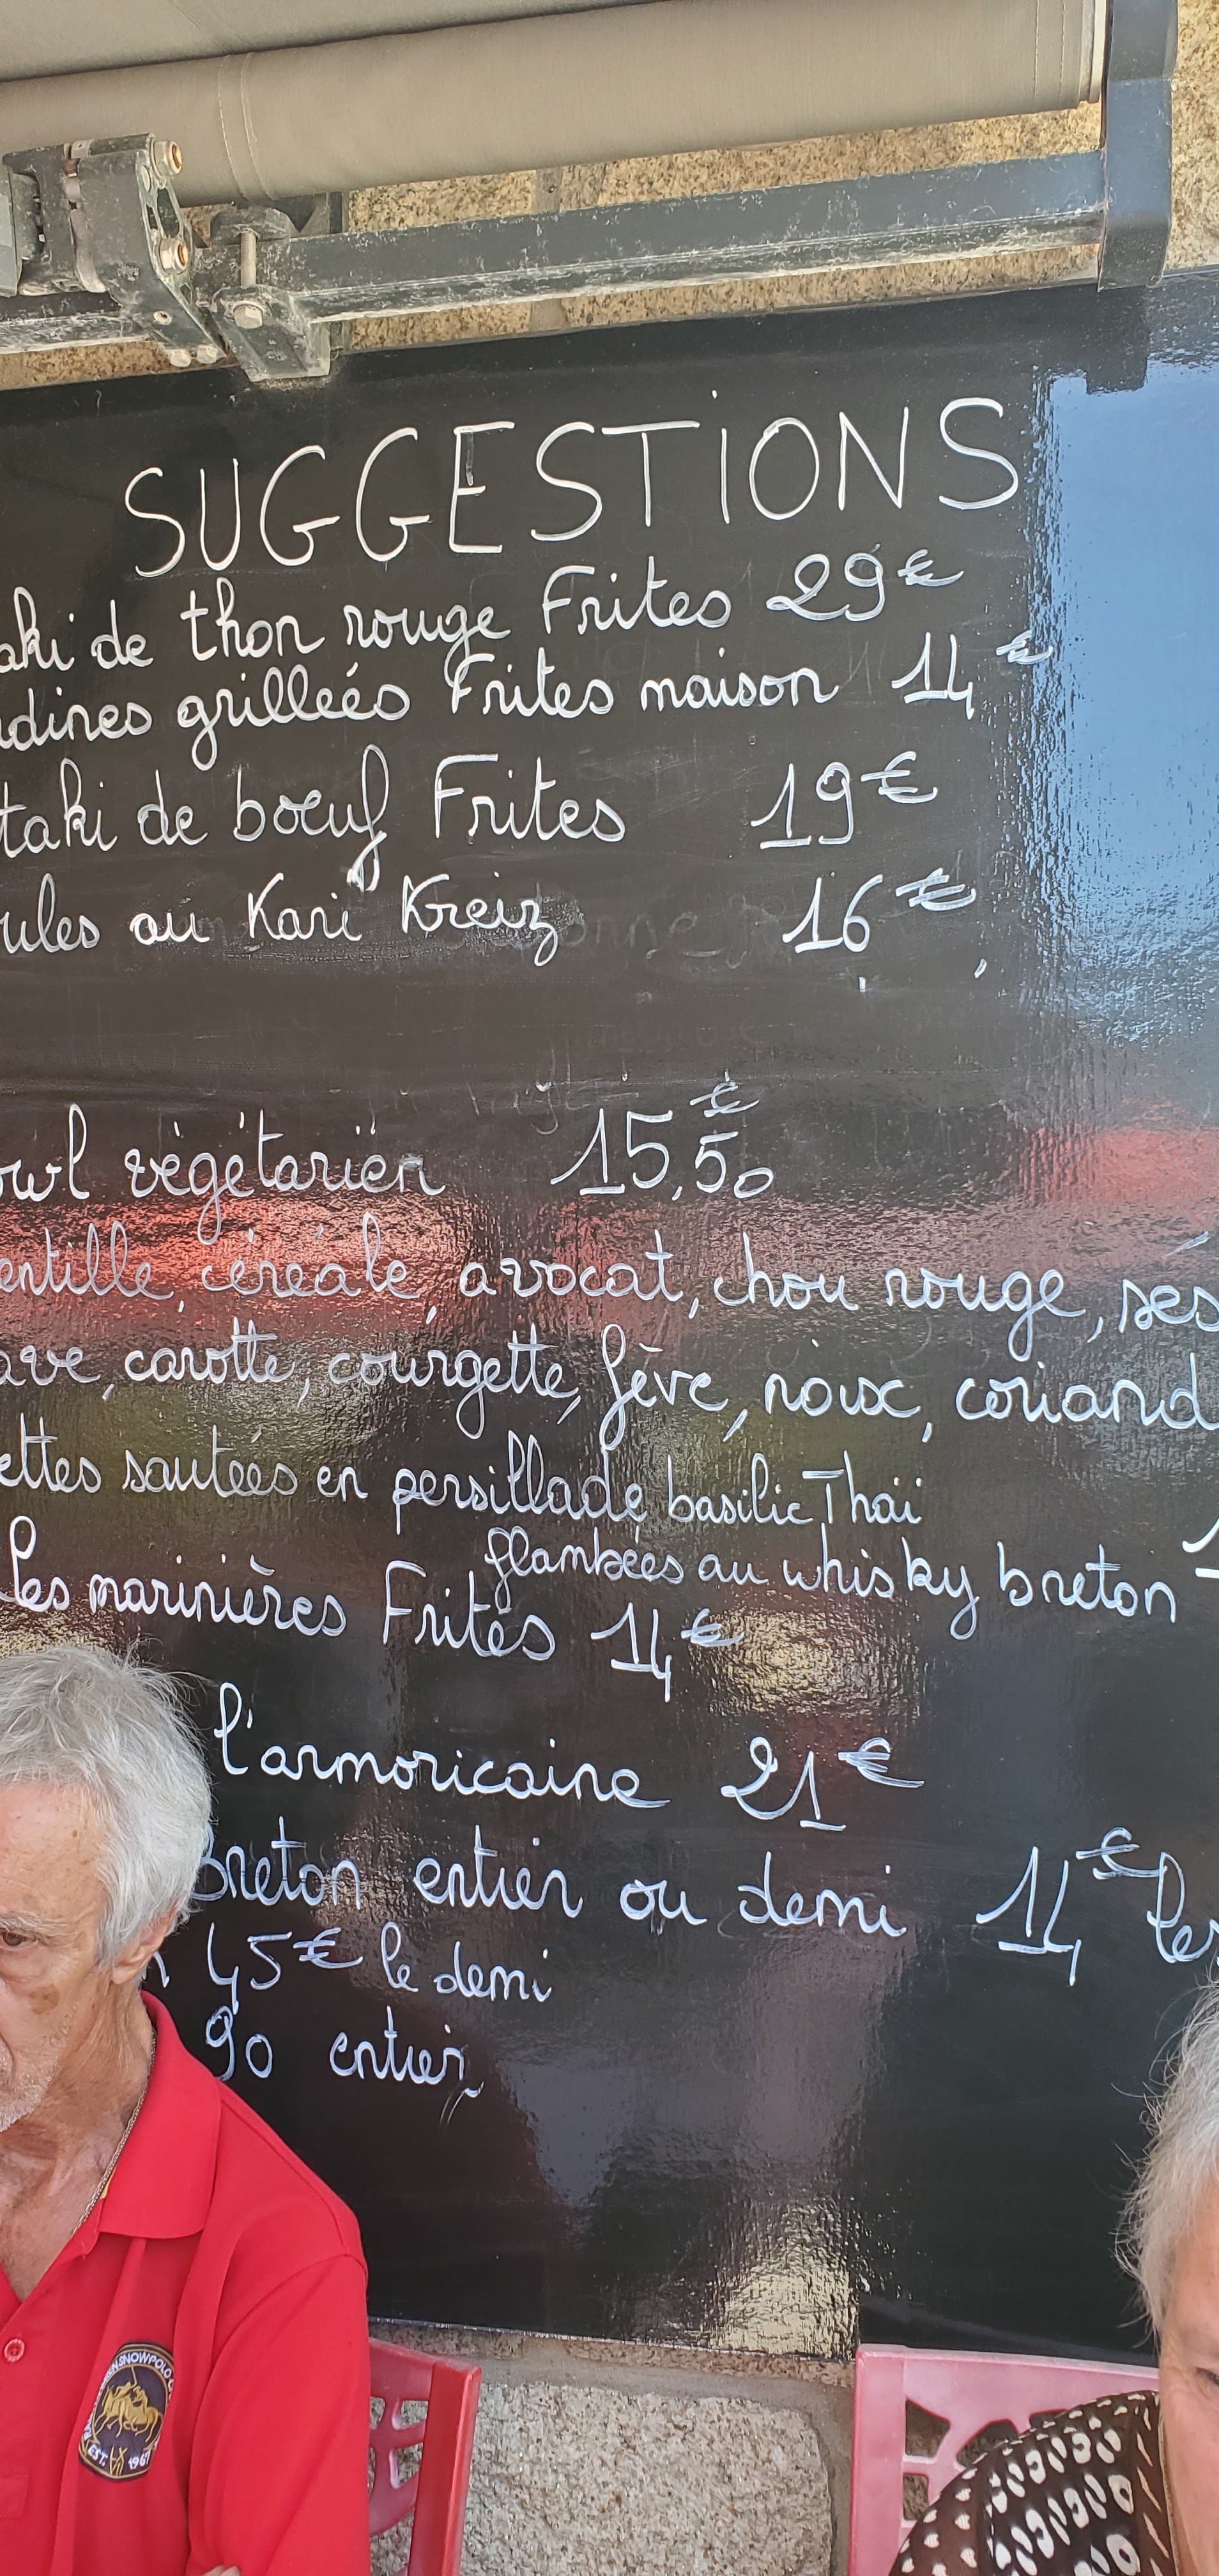 SUGGESTIONS
aki de thon rouge Frites 29€
dines grillées Frites maison 14€
taki de boeuf Frites 19€
ules au Kari Kreiz 16€
owl végétarien 15,50€
entille, céréale, avocat, chou rouge, sés
ave, carotte, courgette, fève, noix, coriand
ettes sautées en persillade, basilic Thaï
flambées au whisky breton 1
les marinières Frites 14€
l'armoricaine 21€
Breton entier ou demi 14€ les
n 45€ le demi
90 entier
SNOWPOLO
EST. 196